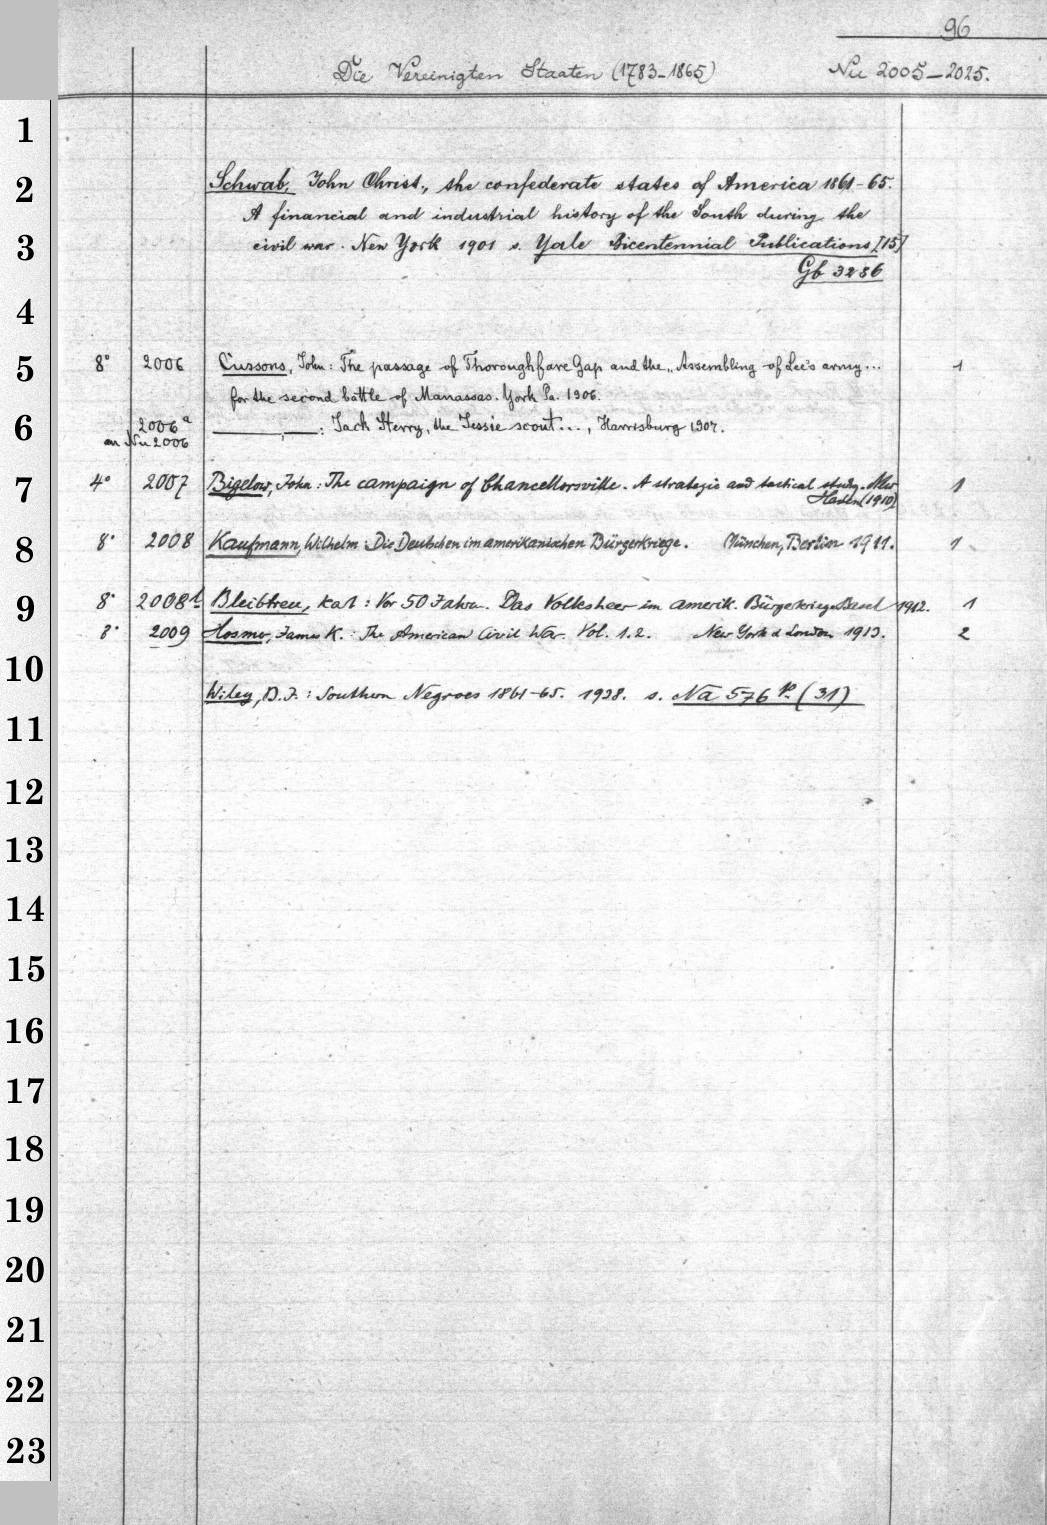 96
Die Vereinigten Staaten (1783-1865) Nu 2005-2025.
1
2 Schwab, John Christ., the confederate states of America 1861-65.
A financial and industrial history of the South during the
3 civil war. New York 1901 s. Yale Bicentennial Publications [15]
Gb 3286
4
5 8° 2006 Cussons, John: The passage of Thoroughfare Gap and the „Assembling of Lee's army... 1
for the second battle of Manassas. York Pa. 1906.
6 2006a ———, ——: Jack Sterry, the Jessie scout..., Harrisburg 1907.
an Nu 2006
7 4° 2007 Bigelow, John: The campaign of Chancellorsville. A strategic and tactical study. New 1
Haven (1910)
8 8° 2008 Kaufmann, Wilhelm: Die Deutschen im amerikanischen Bürgerkriege. München, Berlin 1911. 1
9 8° 2008b Bleibtreu, Karl: Vor 50 Jahren. Das Volksheer im amerik. Bürgerkriege. Basel 1912. 1
8° 2009 Hosmer, James K.: The American Civil War. Vol. 1.2. New York & London 1913. 2
10
Wiley, B.J.: Southern Negroes 1861-65. 1938. s. Na 576 p. (31)
11
12
13
14
15
16
17
18
19
20
21
22
23